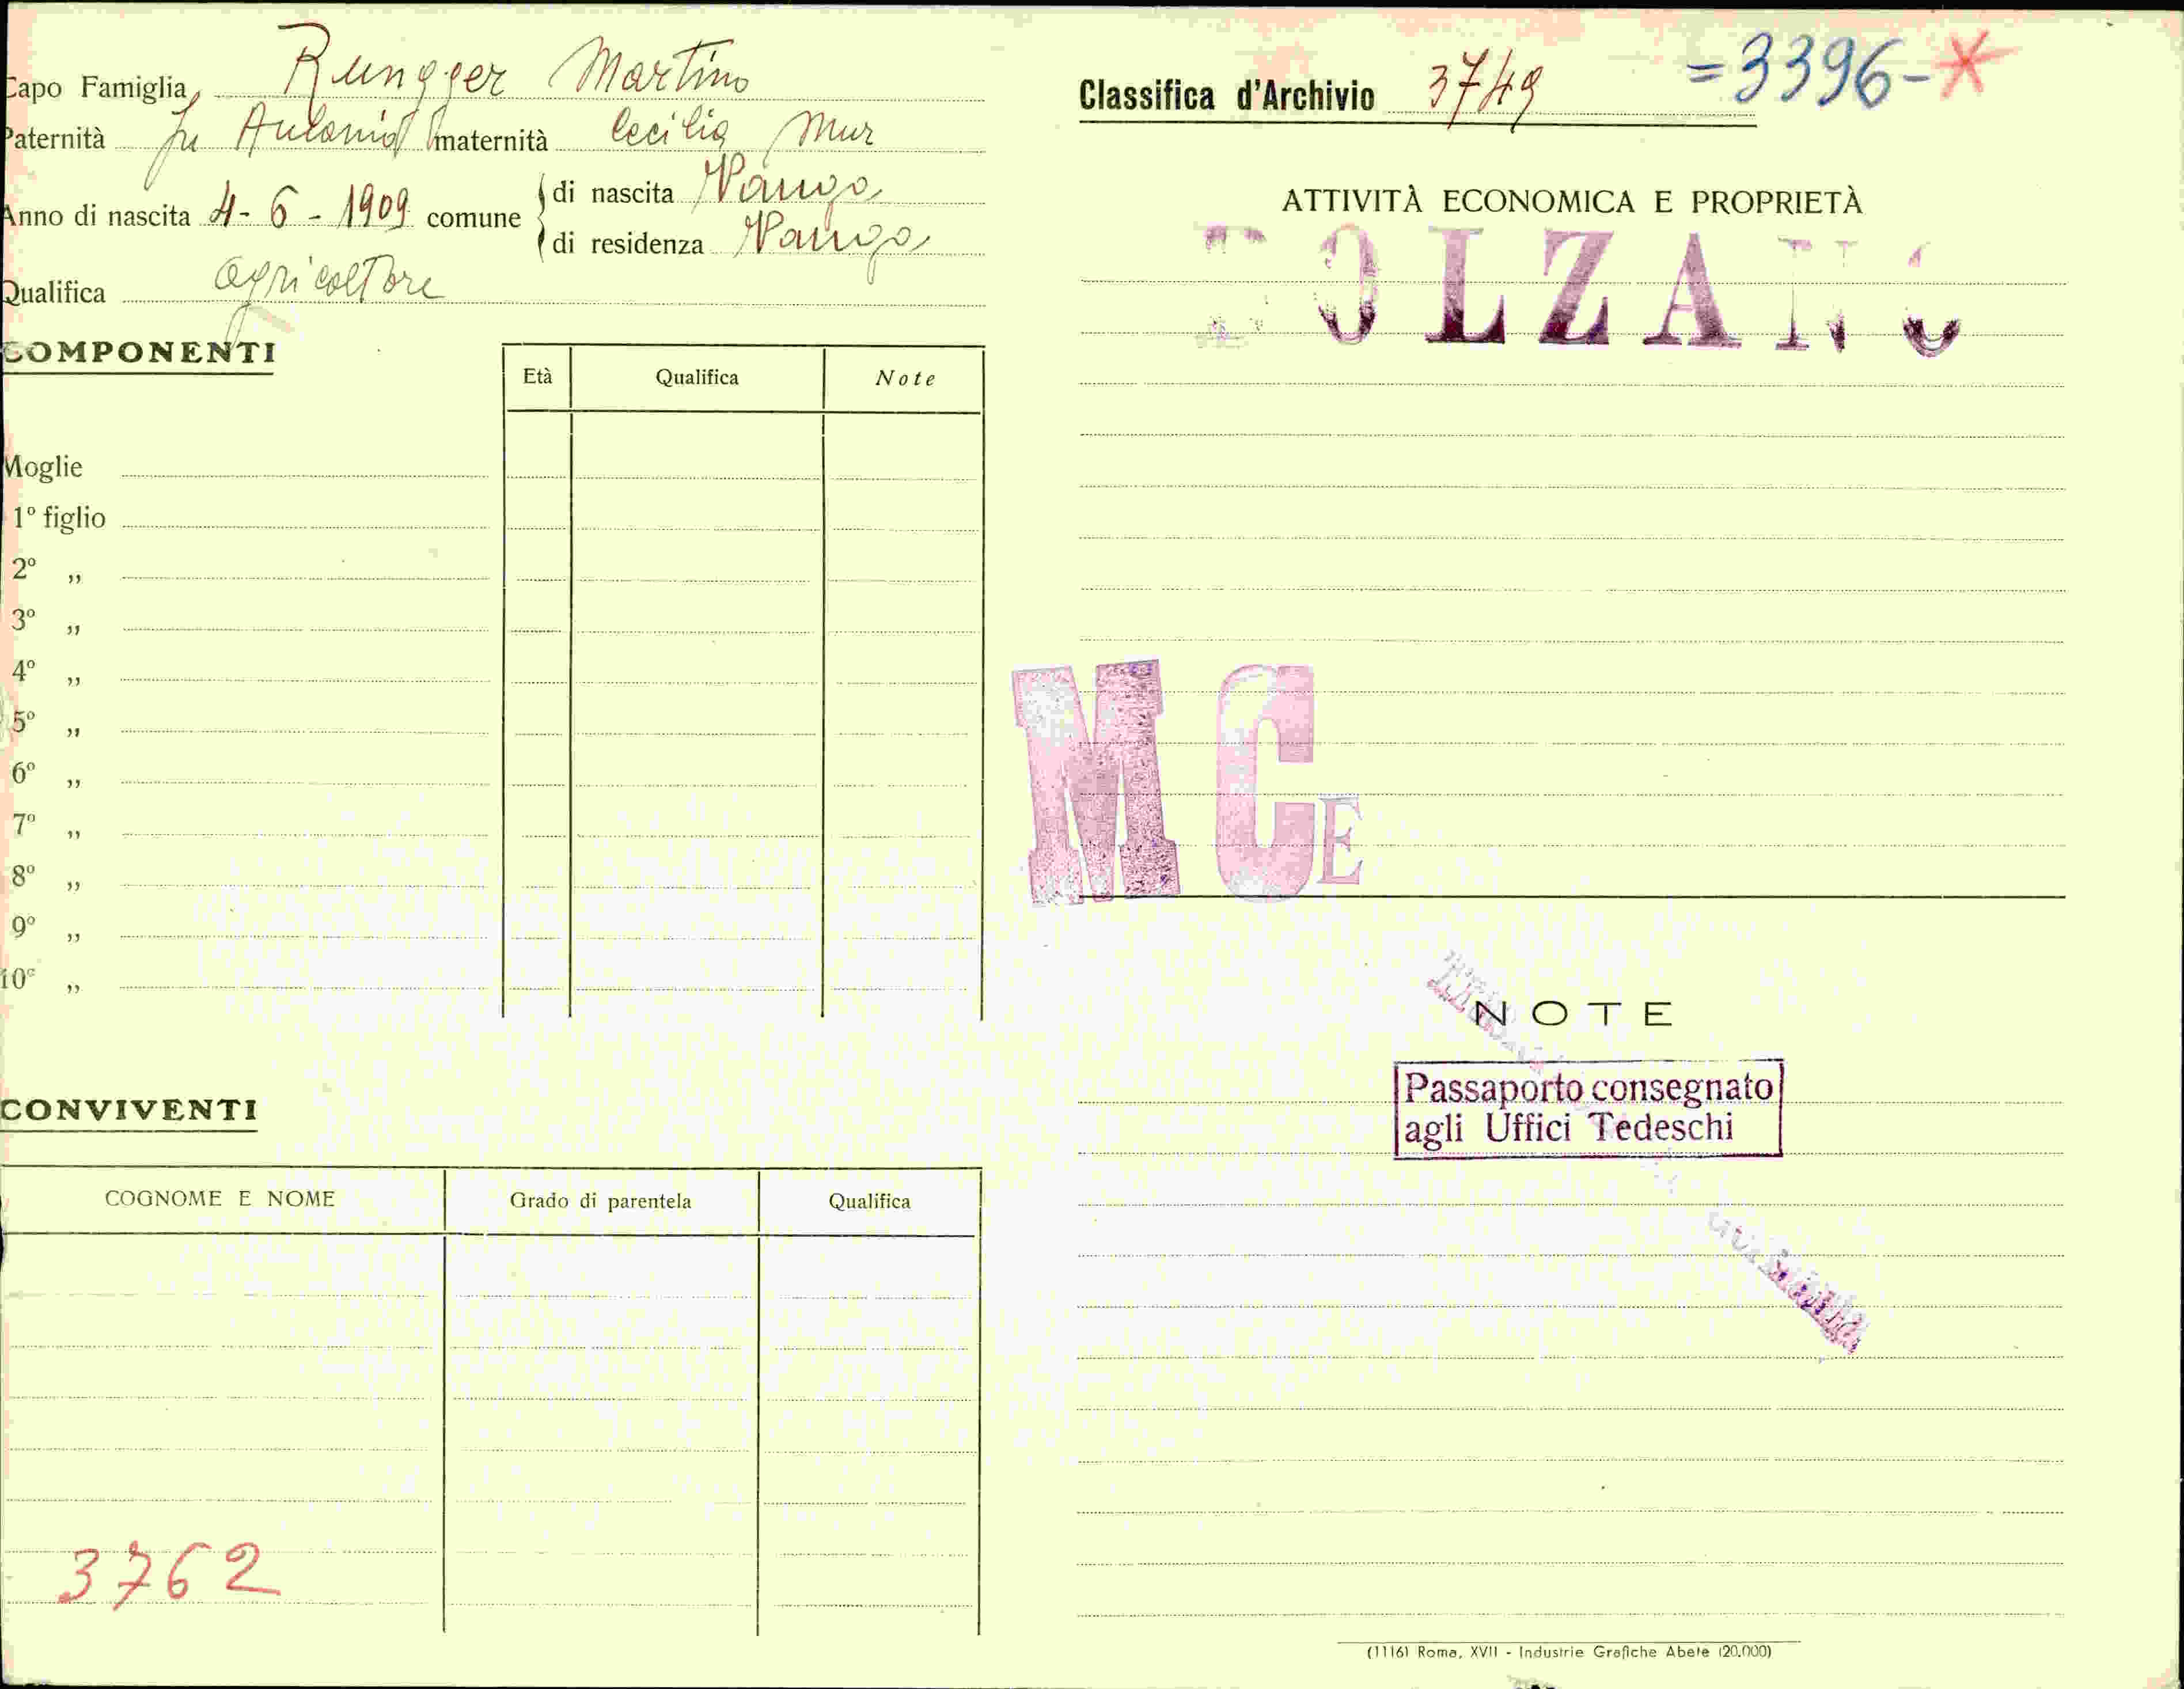 Capo Famiglia Rungger Martino
Paternità fu Antonio maternità Cecilia Mur
Anno di nascita 4-6-1909 comune
di nascita Vanga
di residenza Vanga
Qualifica agricoltore
COMPONENTI
Età Qualifica Note
Moglie
1º figlio
2º „
3º „
4º „
5º „
6º „
7º „
8º „
9º „
10º „
CONVIVENTI
COGNOME E NOME Grado di parentela Qualifica
3762
Classifica d'Archivio 3749 =3396-*
ATTIVITÀ ECONOMICA E PROPRIETÀ
BOLZANO
MCE
NOTE
Passaporto consegnato
agli Uffici Tedeschi
(1116) Roma, XVII - Industrie Grafiche Abete (20.000)